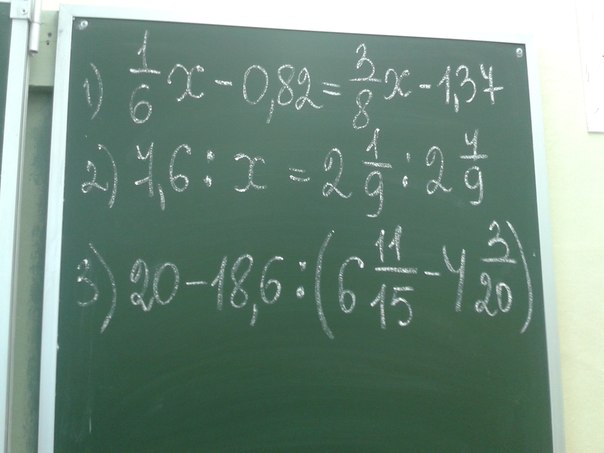 1) 1/6 x - 0,82 = 3/8 x - 1,37
2) 7,6 : x = 2 1/9 : 2 7/9
3) 20 - 18,6 : (6 11/15 - 4 3/20)